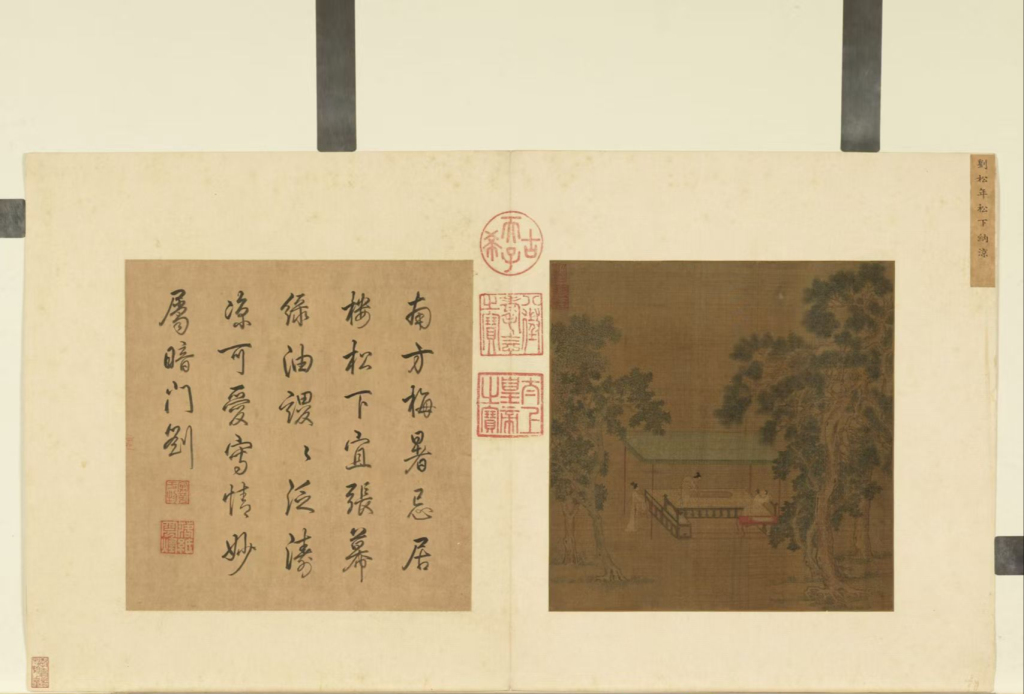 劉松年松下納涼
古
希
天子
八徵
耄念
之寶
太上
皇帝
之寶
南方梅暑忌居
樓松下宜張幕
綠油謖〻泛濤
涼可愛寫情妙
屬暗門劉